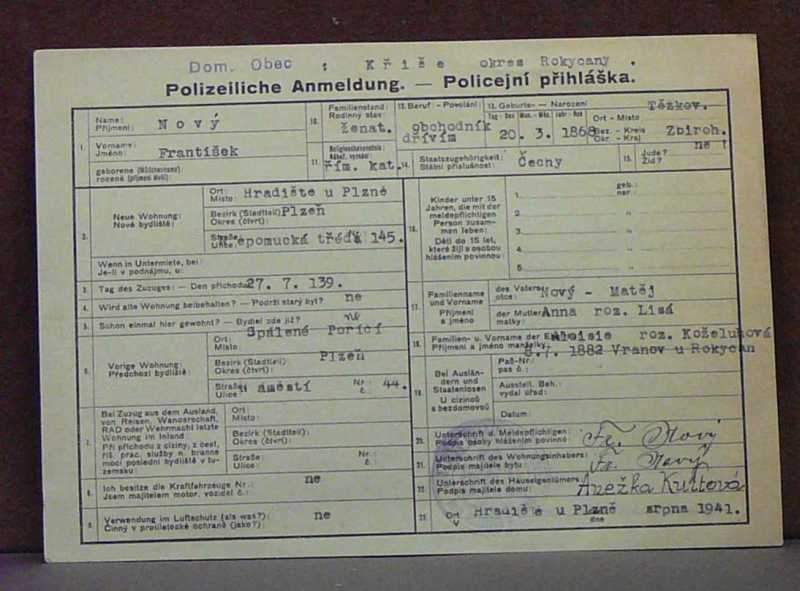 Dom. Obec : Kříše okres Rokycany .
Polizeiliche Anmeldung. — Policejní přihláška.
1. Name: Příjmení: Nový
Vorname: Jméno: František
geborene (Mädchenname) rozená (příjmení dívčí):
10. Familienstand: Rodinný stav: ženat.
11. Religionsbekenntnis: Nábož. vyznání: řím. kat.
12. Beruf - Povolání: obchodník dřívím
13. Geburts- — Narození
Tag - Den Mon. - Měs. Jahr - Rok 20. 3. 1868
Ort - Místo Těškov.
Bez. - Kreis Okr. - Kraj Zbiroh.
14. Staatszugehörigkeit: Státní příslušnost: Čecny
15. Jude? Žid? ne !
2. Neue Wohnung: Nové bydliště:
Ort: Místo: Hradiště u Plzně
Bezirk (Stadtteil) Okres (čtvrť): Plzeň
Straße Ulice: epomucká třída 145.
Wenn in Untermiete, bei: Je-li v podnájmu, u:
3. Tag des Zuzuges: — Den příchodu: 27. 7. 139.
4. Wird alte Wohnung beibehalten? — Podrží starý byt? ne
5. Schon einmal hier gewohnt? — Bydlel zde již? ne
6. Vorige Wohnung: Předchozí bydliště:
Ort: Místo: Spálené Poříčí
Bezirk (Stadtteil): Okres (čtvrť): Plzeň
Straße: Ulice: náměstí Nr.: č. 44.
7. Bei Zuzug aus dem Ausland, von Reisen, Wanderschaft, RAD oder Wehrmacht letzte Wohnung im Inland:
Při příchodu z ciziny, z cest, říš. prac. služby n. branné moci poslední bydliště v tuzemsku:
Ort: Místo:
Bezirk (Stadtteil): Okres (čtvrť):
Straße: Ulice: Nr.: č.
8. Ich besitze die Kraftfahrzeuge Nr.: Jsem majitelem motor. vozidel č.: ne
9. Verwendung im Luftschutz (als was?): Činný v protiletecké ochraně (jako?): ne
16. Kinder unter 15 Jahren, die mit der meldepflichtigen Person zusammen leben:
Děti do 15 let, které žijí s osobou hlášením povinnou:
1. geb.: nar.
2. "
3. "
4. "
5. "
17. Familienname und Vorname Příjmení a jméno
des Vaters: otce: Nový - Matěj
der Mutter: matky: Anna roz. Lisá
18. Familien- u. Vorname der Příjmení a jméno manželky: Aloisie roz. Koželuhová
8.7. 1882 Vranov u Rokycan
19. Bei Ausländern und Staatenlosen U cizinců a bezdomovců
Paß-Nr.: pas č.:
Ausstell. Beh.: vydal úřad:
Datum:
20. Unterschrift d. Meldepflichtigen: Podpis osoby hlášením povinné: Fr. Nový
21. Unterschrift des Wohnungsinhabers: Podpis majitele bytu: Fr. Nový
22. Unterschrift des Hauseigentümers: Podpis majitele domu: Anežka Kurtová
23. Ort V Hradiště u Plzně dne srpna 1941.